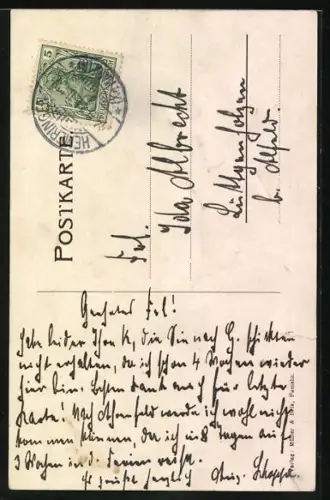 5
HEERINGEN
POSTKARTE
Frl.
Ida Albrecht
Lüttgenholzen
b. Alfeld.
Geehrtes Frl!
Habe leider Ihre K, die Sie nach G. schickten
nicht erhalten, da ich schon 4 Wochen wieder
hier bin. Besten Dank auch für letzte
Karte! Nach Ahrenfeld werde ich wohl nicht
kommen können, da ich in 8 Tagen auf
3 Wochen in d. Ferien
Es grüßt herzlich Aug.